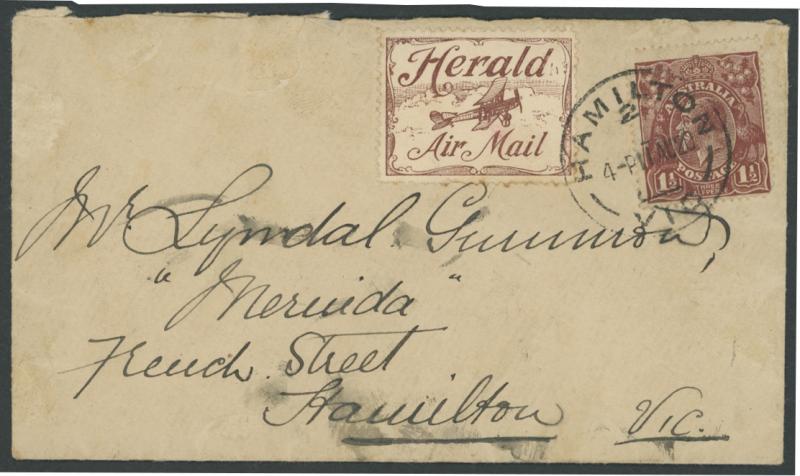 Herald
Air Mail
HAMILTON
4-P
VIC
AUSTRALIA
POSTAGE
1½ 1½
THREE
HALFPENCE
Mr. Lyndal Gunnron,
"Meruida"
French Street
Hamilton Vic.